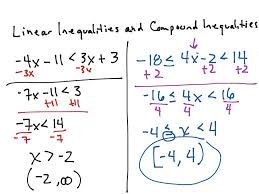 Linear Inequalities and Compound Inequalities
-4x-11 < 3x+3
-3x -3x
-7x-11 < 3
+11 +11
-7x < 14
-7 -7
x > -2
(-2, ∞)
-18 ≤ 4x-2 < 14
+2 +2 +2
-16 ≤ 4x < 16
4 4 4
-4 ≤ x < 4
[-4, 4)